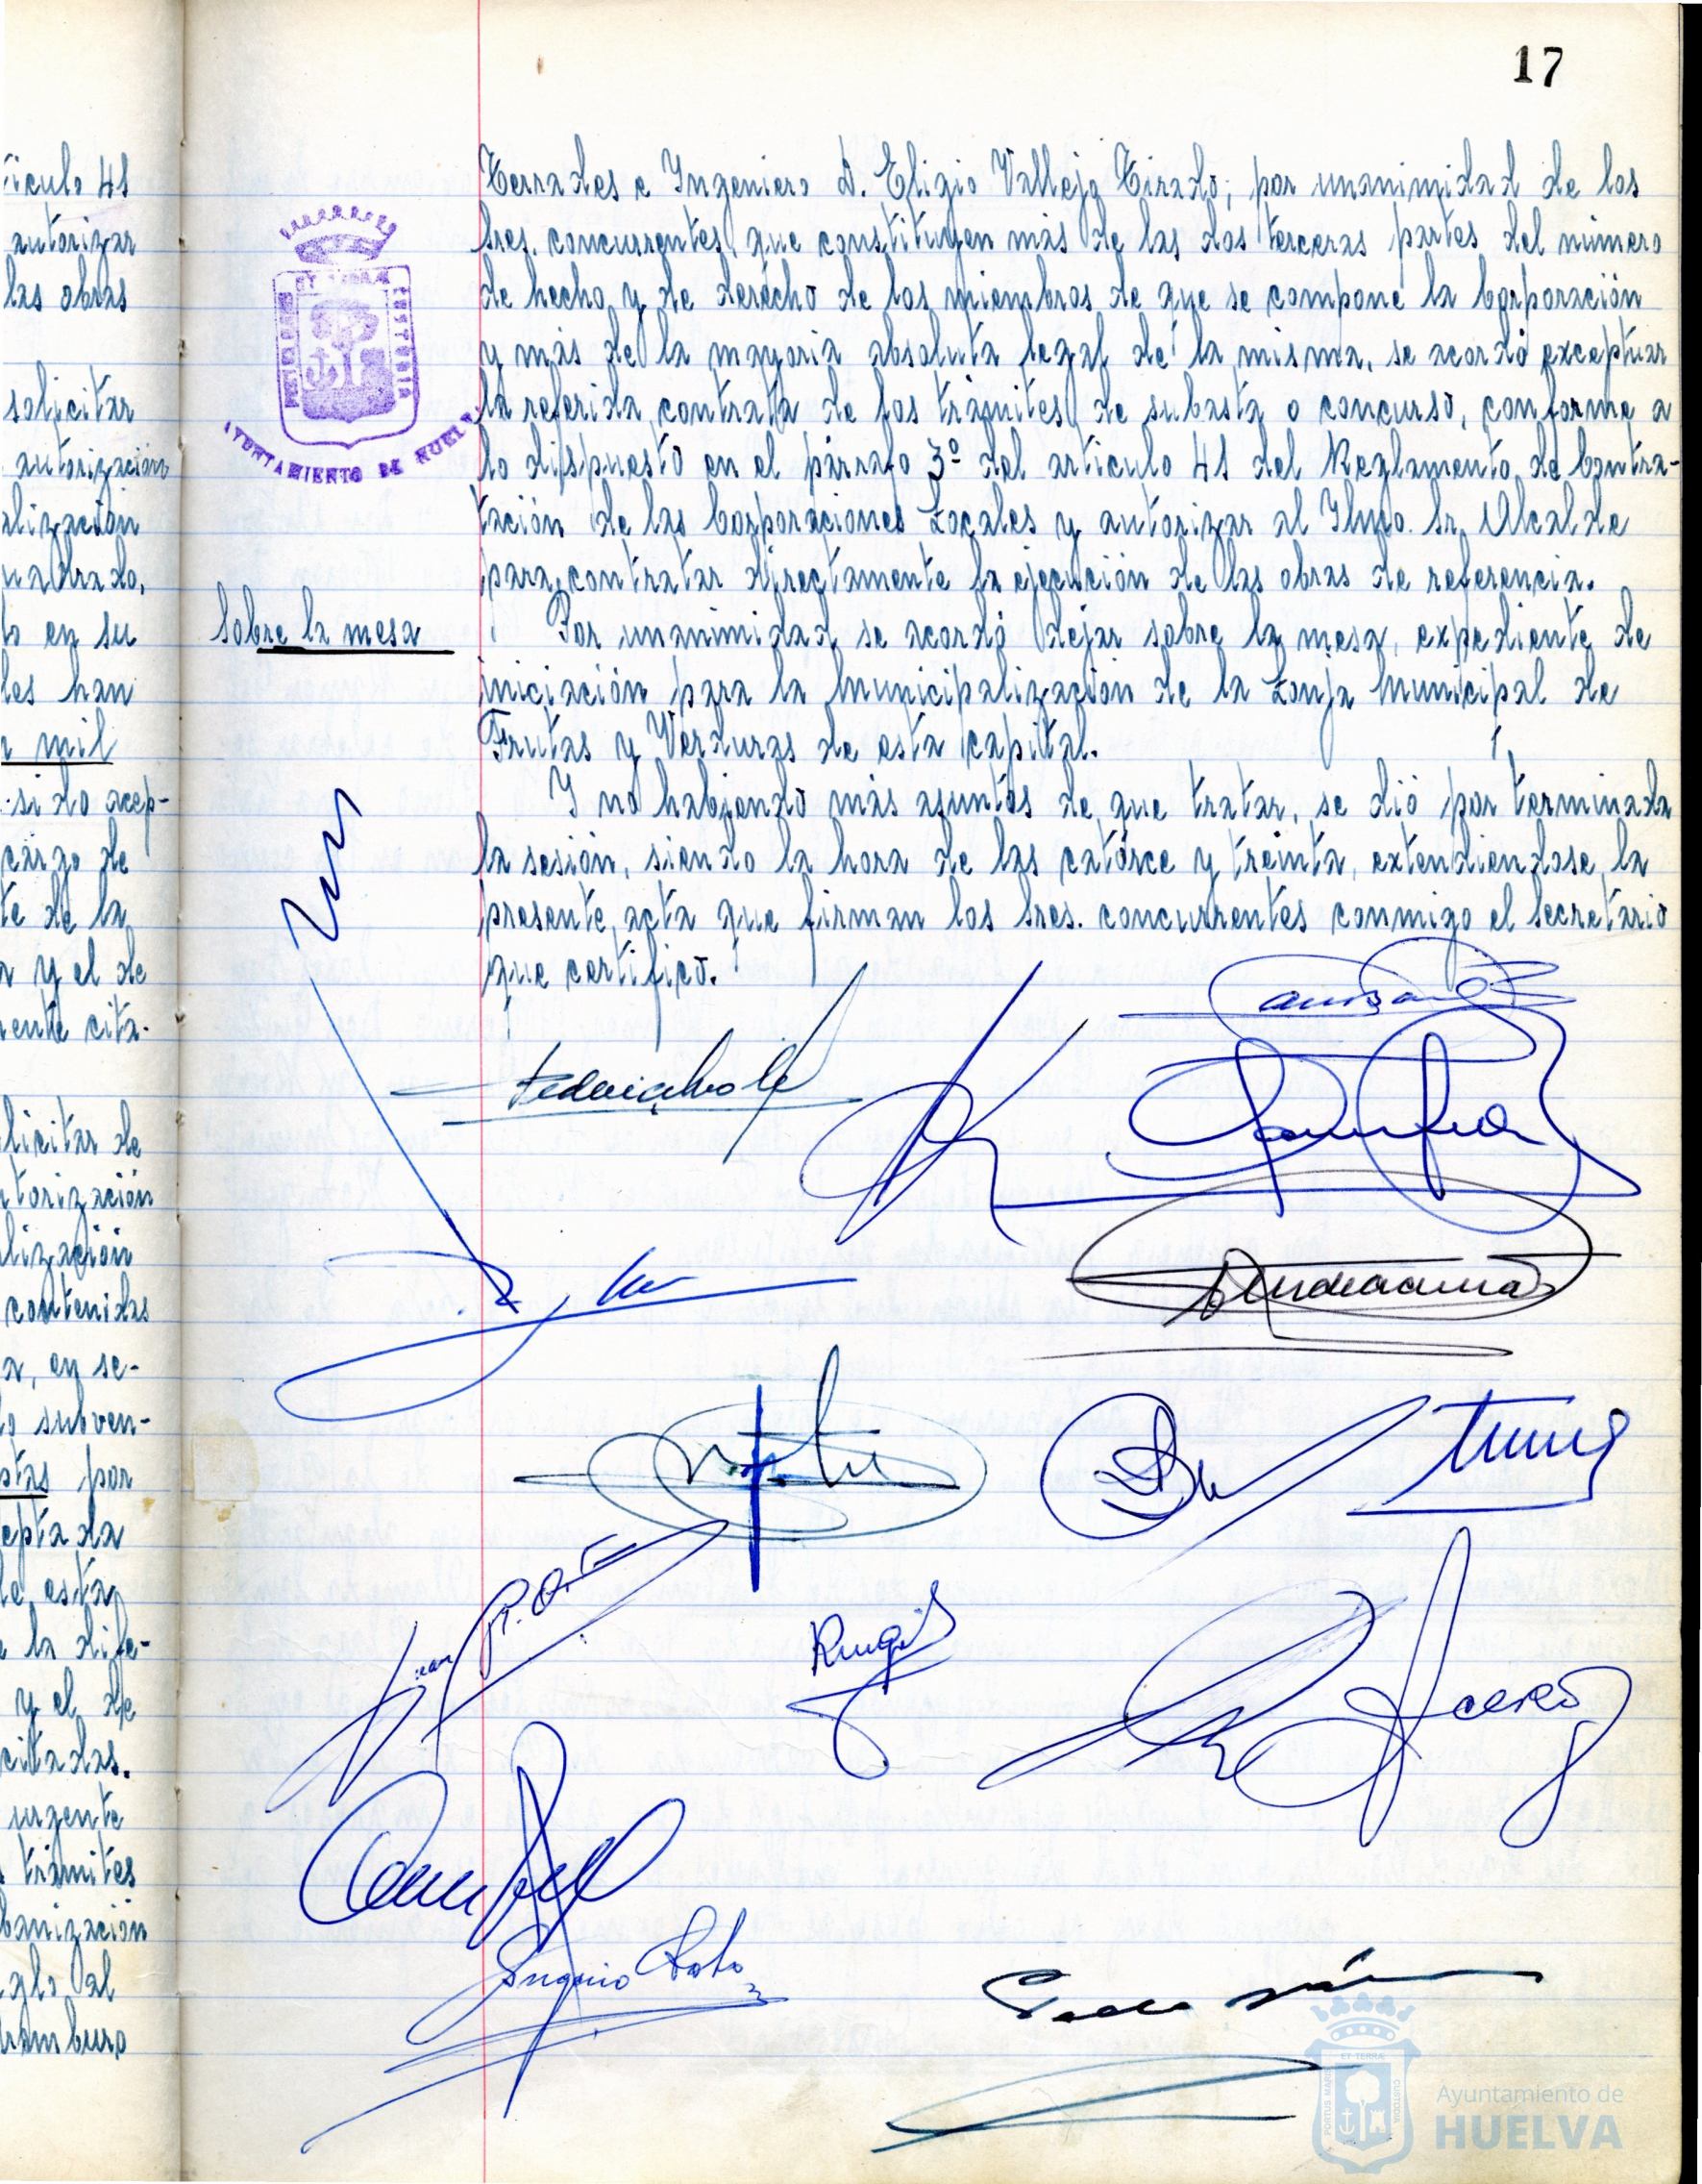 17
ticulo 41
autorizar
las obras
solicitar
autorización
alización
uadrado,
o en su
les han
mil
sido acep-
cargo de
te de la
a y el de
mente cita-
licitar de
torización
lización
contenidas
a, en se-
lo subven-
stas por
epta da
de esta
e la dife-
y el de
citadas.
urgente
trámites
banización
eglo al
Aramburo
AYUNTAMIENTO DE HUELVA
Terrades e Ingeniero D. Eligio Vallejo Tirado; por unanimidad de los
Sres. concurrentes, que constituyen más de las dos terceras partes del número
de hecho y de derecho de los miembros de que se compone la Corporación
y más de la mayoria absoluta legal de la misma, se acordó exceptuar
la referida contrata de los trámites de subasta o concurso, conforme a
lo dispuesto en el párrafo 3º del articulo 41 del Reglamento de Contra-
tación de las Corporaciones Locales y autorizar al Iltmo. Sr. Alcalde
para contratar directamente la ejecución de las obras de referencia.
Sobre la mesa
Por unanimidad se acordó dejar sobre la mesa, expediente de
iniciación para la Municipalización de la Lonja Municipal de
Frutas y Verduras de esta capital.
Y no habiendo más asuntos de que tratar, se dió por terminada
la sesión, siendo la hora de las catorce y treinta, extendiendose la
presente acta que firman los Sres. concurrentes conmigo el Secretario
que certifico.
Ayuntamiento de
HUELVA